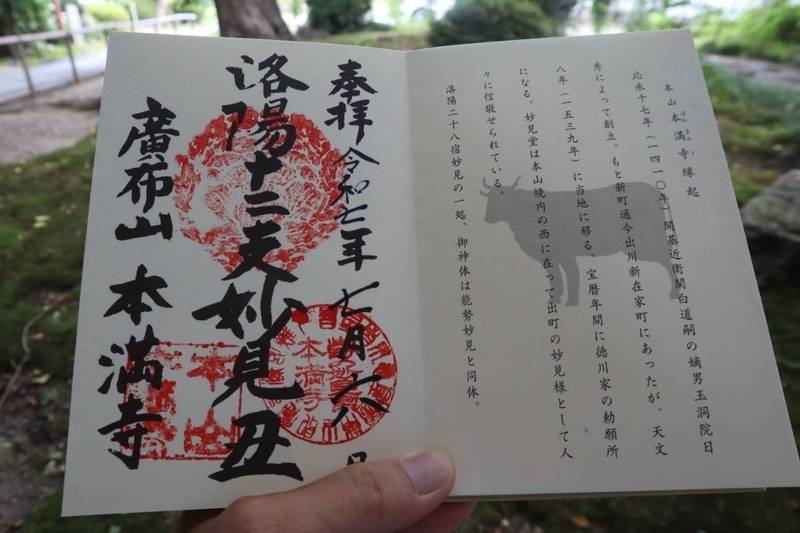 本山本満寺縁起
応永十七年（一四一〇年）開基近衛関白道嗣の嫡男玉洞院日
秀によって創立。もと新町通今出川新在家町にあったが、天文
八年（一五三九年）に当地に移る。宝暦年間に徳川家の勅願所
になる。妙見堂は本山境内の西に在って出町の妙見様として人
々に信敬せられている。
洛陽二十八宿妙見の一処、御神体は能勢妙見と同体。
奉拝 令和七年七月六日
洛陽十二支妙見丑
廣布山 本満寺
本満寺